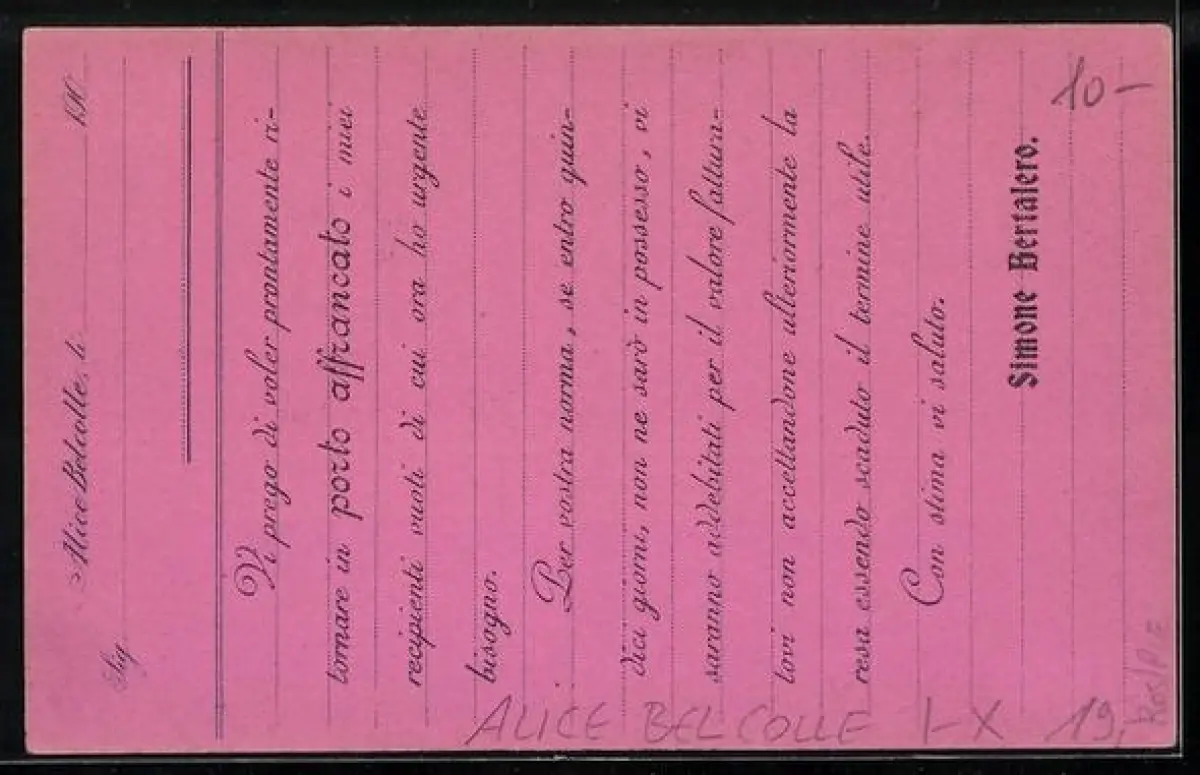 Alice Belcolle, li 191
Sig.
Vi prego di voler prontamente ri-
tornare in porto affrancato i miei
recipienti vuoti di cui ora ho urgente
bisogno.
Per vostra norma, se entro quin-
dici giorni, non ne sarò in possesso, vi
saranno addebitati per il valore fattura-
tovi non accettandone ulteriormente la
resa essendo scaduto il termine utile.
Con stima vi saluto.
Simone Bertalero.
10-
ALICE BEL COLLE I-X 19,